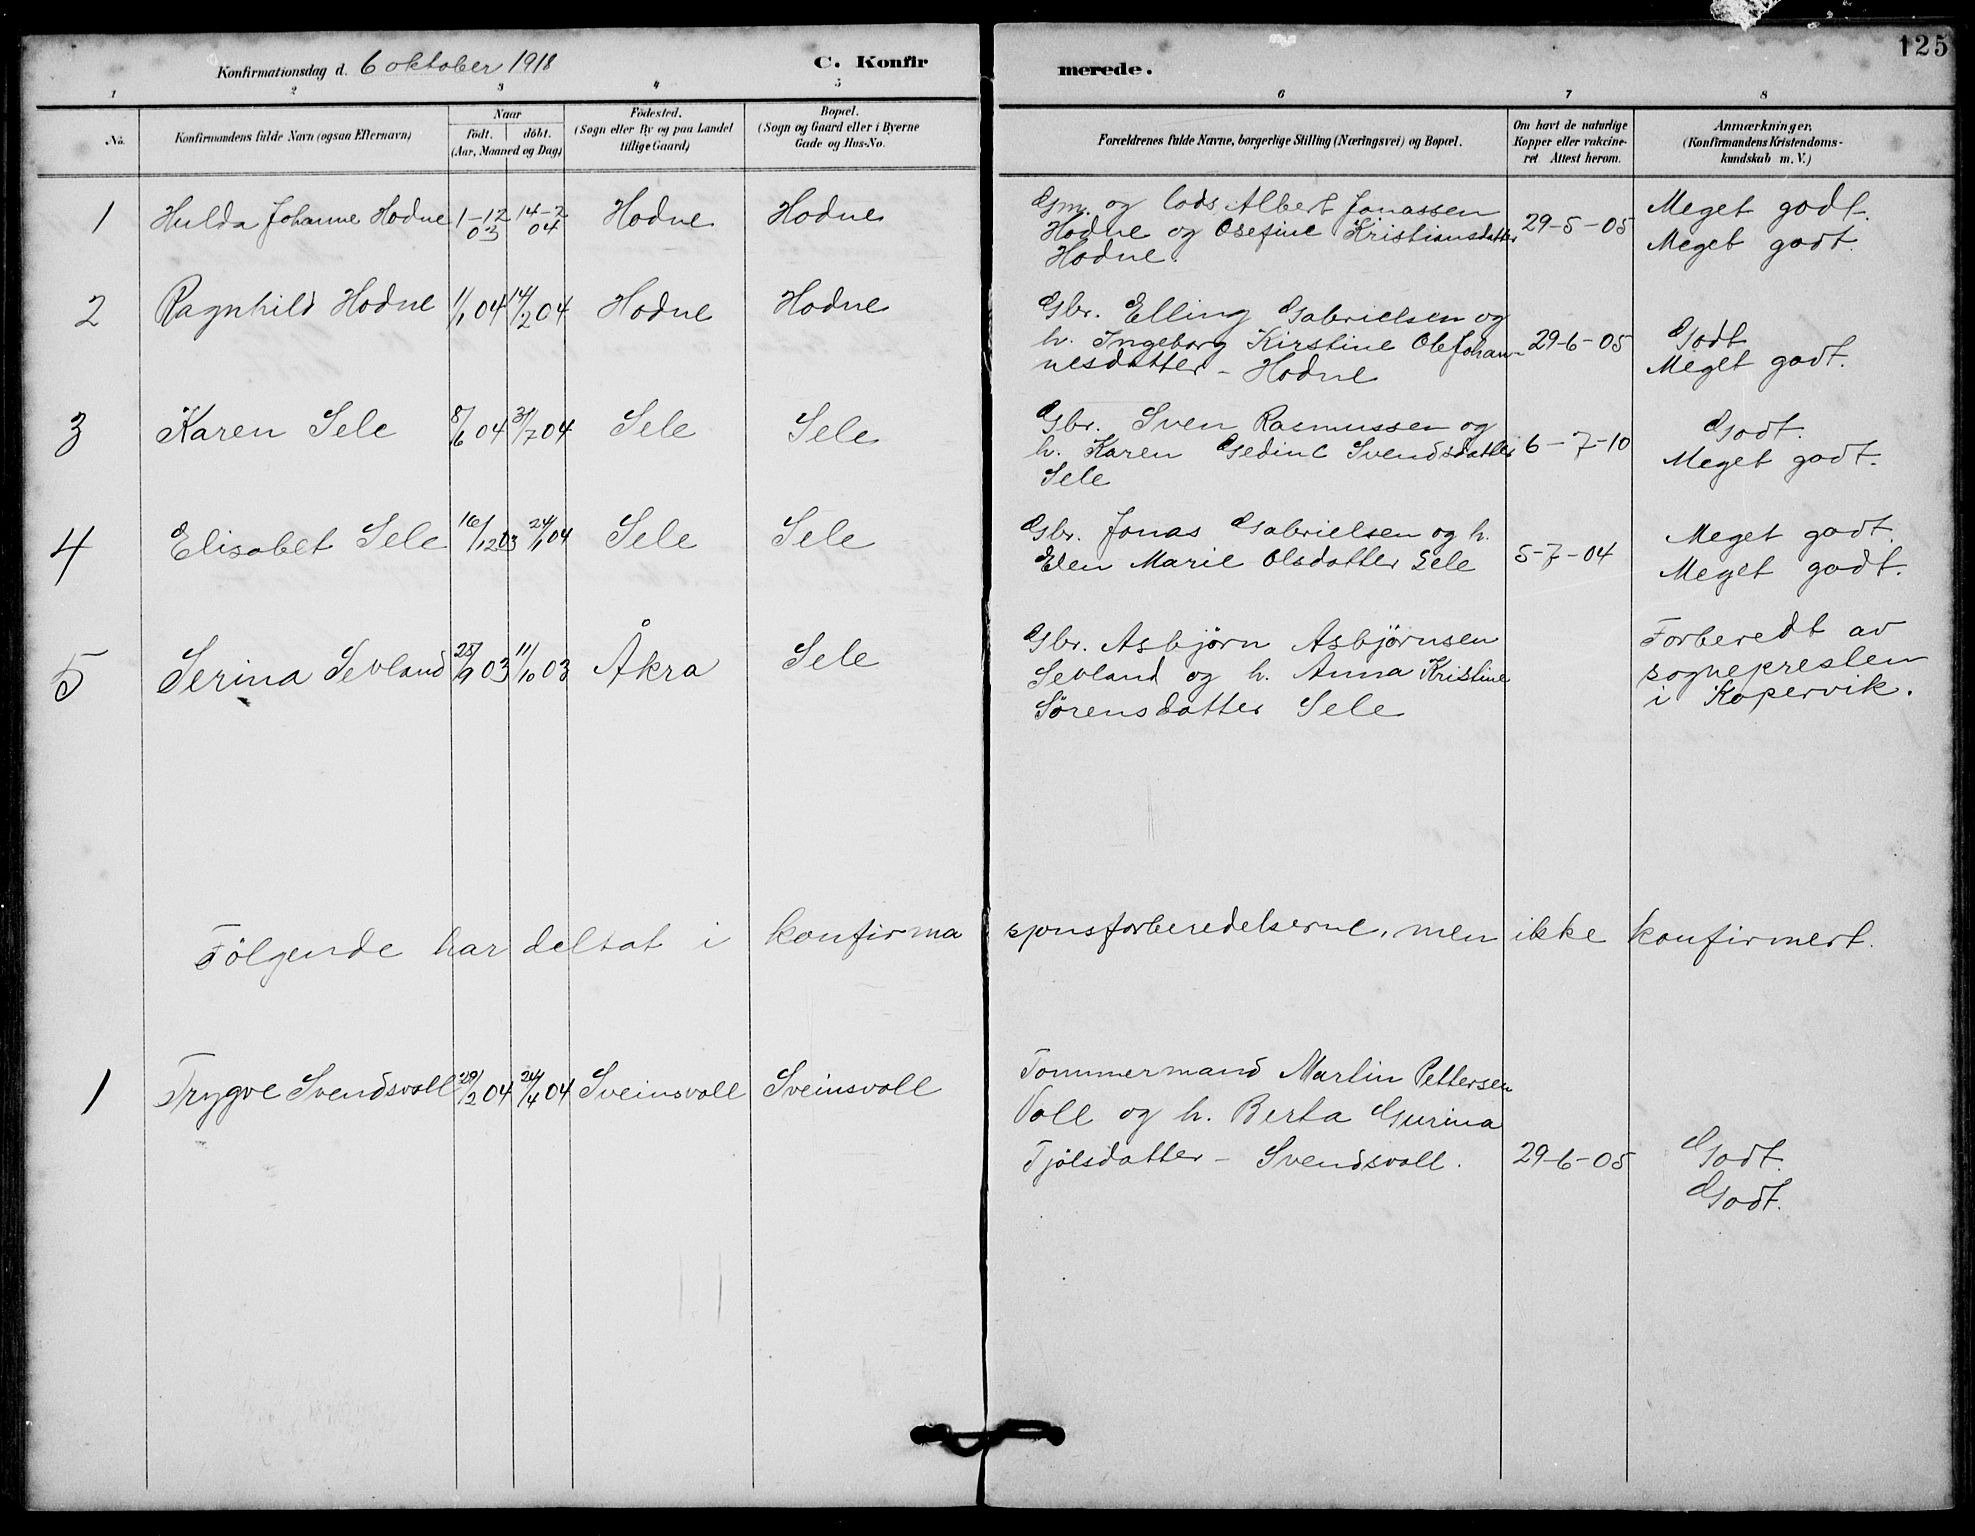 125
Konfirmationsdag d. 6 oktober 1918 C. Konfirmerede.
1 2 3 4 5 6 7 8
No. Konfirmandens fulde Navn (ogsaa Efternavn) Naar født. døbt. (Aar, Maaned og Dag) Fødested. (Sogn eller By og paa Landet tillige Gaard) Bopæl. (Sogn og Gaard eller i Byerne Gade og Hus-No. Forældrenes fulde Navne, borgerlige Stilling (Næringsvei) og Bopæl. Om havt de naturlige Kopper eller vakcineret. Attest herom. Anmærkninger. (Konfirmandens Kristendomskundskab m. V.)
1 Hulda Johanne Hodne 1-12 03 14-2 04 Hodne Hodne
Gm. og Lods Albert Jonassen
Hodne og Osefine Kristiansdatter
Hodne.
29-5-05
Meget godt.
Meget godt.
2 Ragnhild Hodne 1/1 04 14/2 04 Hodne Hodne
Gbr. Elling Gabrielsen og
h. Ingeborg Kirstine Ole Johan-
nesdatter - Hodne
29-6-05
Godt
Meget godt.
3 Karen Sele 8/6 04 31/7 04 Sele Sele
Gbr. Sven Rasmussen og
h. Karen Gedine Svendsdatter
Sele
6-7-10
Godt.
Meget godt.
4 Elisabet Sele 16/12 03 24/1 04 Sele Sele
Gbr. Jonas Gabrielsen og h.
Elen Marie Olsdatter Sele
5-7-04
Meget godt.
Meget godt.
5 Serina Sevland 28/9 03 11/10 03 Åkra Sele
Gbr. Asbjørn Asbjørnsen
Sevland og h. Anna Kristine
Sørensdatter Sele
Forberedt av
sognepresten
i Kopervik.
Følgende har deltat i konfirmasjonsforberedelserne, men ikke konfirmert.
1 Trygve Svendsvoll 29/2 04 24/4 04 Sveinsvoll Sveinsvoll
Tømmermand Martin Pettersen
Voll og h. Berta Gurina
Tjølsdatter - Svendsvoll.
29-6-05
Godt.
Godt.